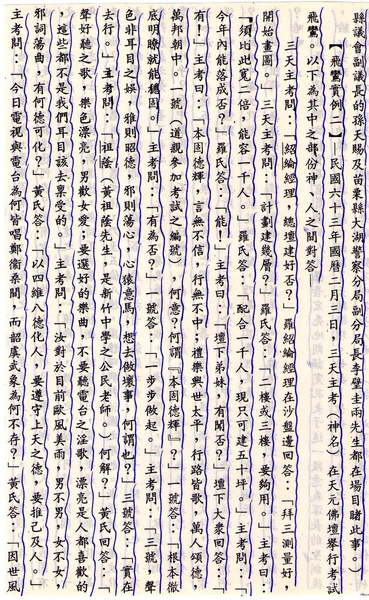 縣議會副議長的孫天賜及苗栗縣大湖警察分局副分局長李壁圭兩先生都在場目睹此事。）
【飛鸞實例二】—民國六十三年國曆二月三日，三天主考（神名）在天元佛壇舉行考試
飛鸞。以下為其中之部份神、人之間對答—
三天主考問：「紹綸經理，總壇建好否？」羅紹綸經理在沙盤邊回答：「拜三測量好，
開始畫圖。」三天主考問：「計劃建幾層？」羅氏答：「二樓或三樓，要夠用。」主考曰：
「須比此寬二倍，能容一千人。」羅氏答：「配合一千人，現只可建五十坪。」主考問：「
今年內能落成否？」羅氏答：「能！」主考曰：「壇下弟妹，有聞否？」壇下大眾回答：「
有！」主考曰：「本固德輝，言無不信，行無不中；禮樂興世太平，行路皆歌，萬人頌德，
萬邦朝中。一號（道親參加考試之編號）何意？何謂『本固德輝』？」一號答：「根本徹
底明瞭就能穩固。」主考問：「有為否？」一號答：「一步步做起。」主考問：「三號，聲
色非耳目之娛，雅則昭德，邪則蕩心，心猿意馬，想去做壞事，何謂也？」三號答：「實在
去行。」主考問：「祖蔭（黃祖蔭先生，是新竹中學之公民老師。）何解？」黃氏回答：「
聲好聽之歌，樂色漂亮，男歡女愛：要選好的樂曲，不要聽電台之淫歌，漂亮是人都喜歡的
，這些都不是我們耳目該去稟受的。」主考問：「汝對於目前歐風美雨，男不男，女不女，
邪詞蕩曲，有何德可化？」黃氏答：「以四維八德化人，要遵守上天之德，要推己及人。」
主考問：「今日電視與電台為何皆唱鄭衛桑間，而韶虞武象為何不存？」黃氏答：「因世風